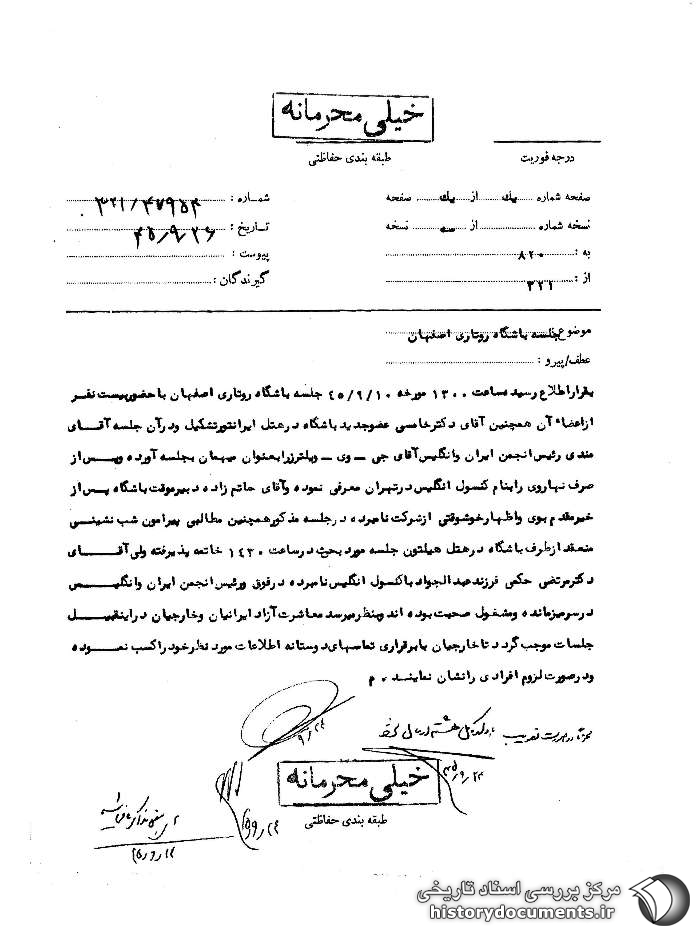 خیلی محرمانه
درجه فوریت
طبقه بندی حفاظتی
صفحه شماره یک از یک صفحه
شماره : ۳۲۱/۴۷۹۵۴
نسخه شماره از سه نسخه
تاریخ : ۴۵/۹/۲۶
به : ۸۲۰
پیوست :
از : ۳۲۱
گیرندگان :
موضوع جلسه باشگاه روتاری اصفهان
عطف/پیرو :
بقرار اطلاع رسیده ساعت ۱۳۰۰ مورخه ۴۵/۹/۱۰ جلسه باشگاه روتاری اصفهان با حضور بیست نفر
از اعضاء آن همچنین آقای دکتر خامسی عضو جدید باشگاه در هتل ایرانتور تشکیل و در آن جلسه آقای
مندی رئیس انجمن ایران و انگلیس آقای جی - وی - ویلترز را بعنوان میهمان بجلسه آورده و پس از
صرف نهار وی را بنام کنسول انگلیس در تهران معرفی نموده و آقای حاتم زاده دبیر موقت باشگاه پس از
خیر مقدم بوی و اظهار خوشوقتی از شرکت نامبرده در جلسه مذکور همچنین مطالبی پیرامون شب نشینی
منعقد از طرف باشگاه در هتل هیلتون جلسه مورد بحث در ساعت ۱۴۳۰ خاتمه پذیرفته ولی آقای
دکتر مرتضی حکمی فرزند عبدالجواد با کنسول انگلیس نامبرده در فوق و رئیس انجمن ایران و انگلیس
در سر میز مانده و مشغول صحبت بوده اند و بنظر میرسد معاشرت آزاد ایرانیان و خارجیان در اینقبیل
جلسات موجب گردد تا خارجیان با برقراری تماسهای دوستانه اطلاعات مورد نظر خود را کسب نموده
و در صورت لزوم افرادی را نشان نمایند . م
خیلی محرمانه
طبقه بندی حفاظتی
مرکز بررسی اسناد تاریخی
historydocuments.ir